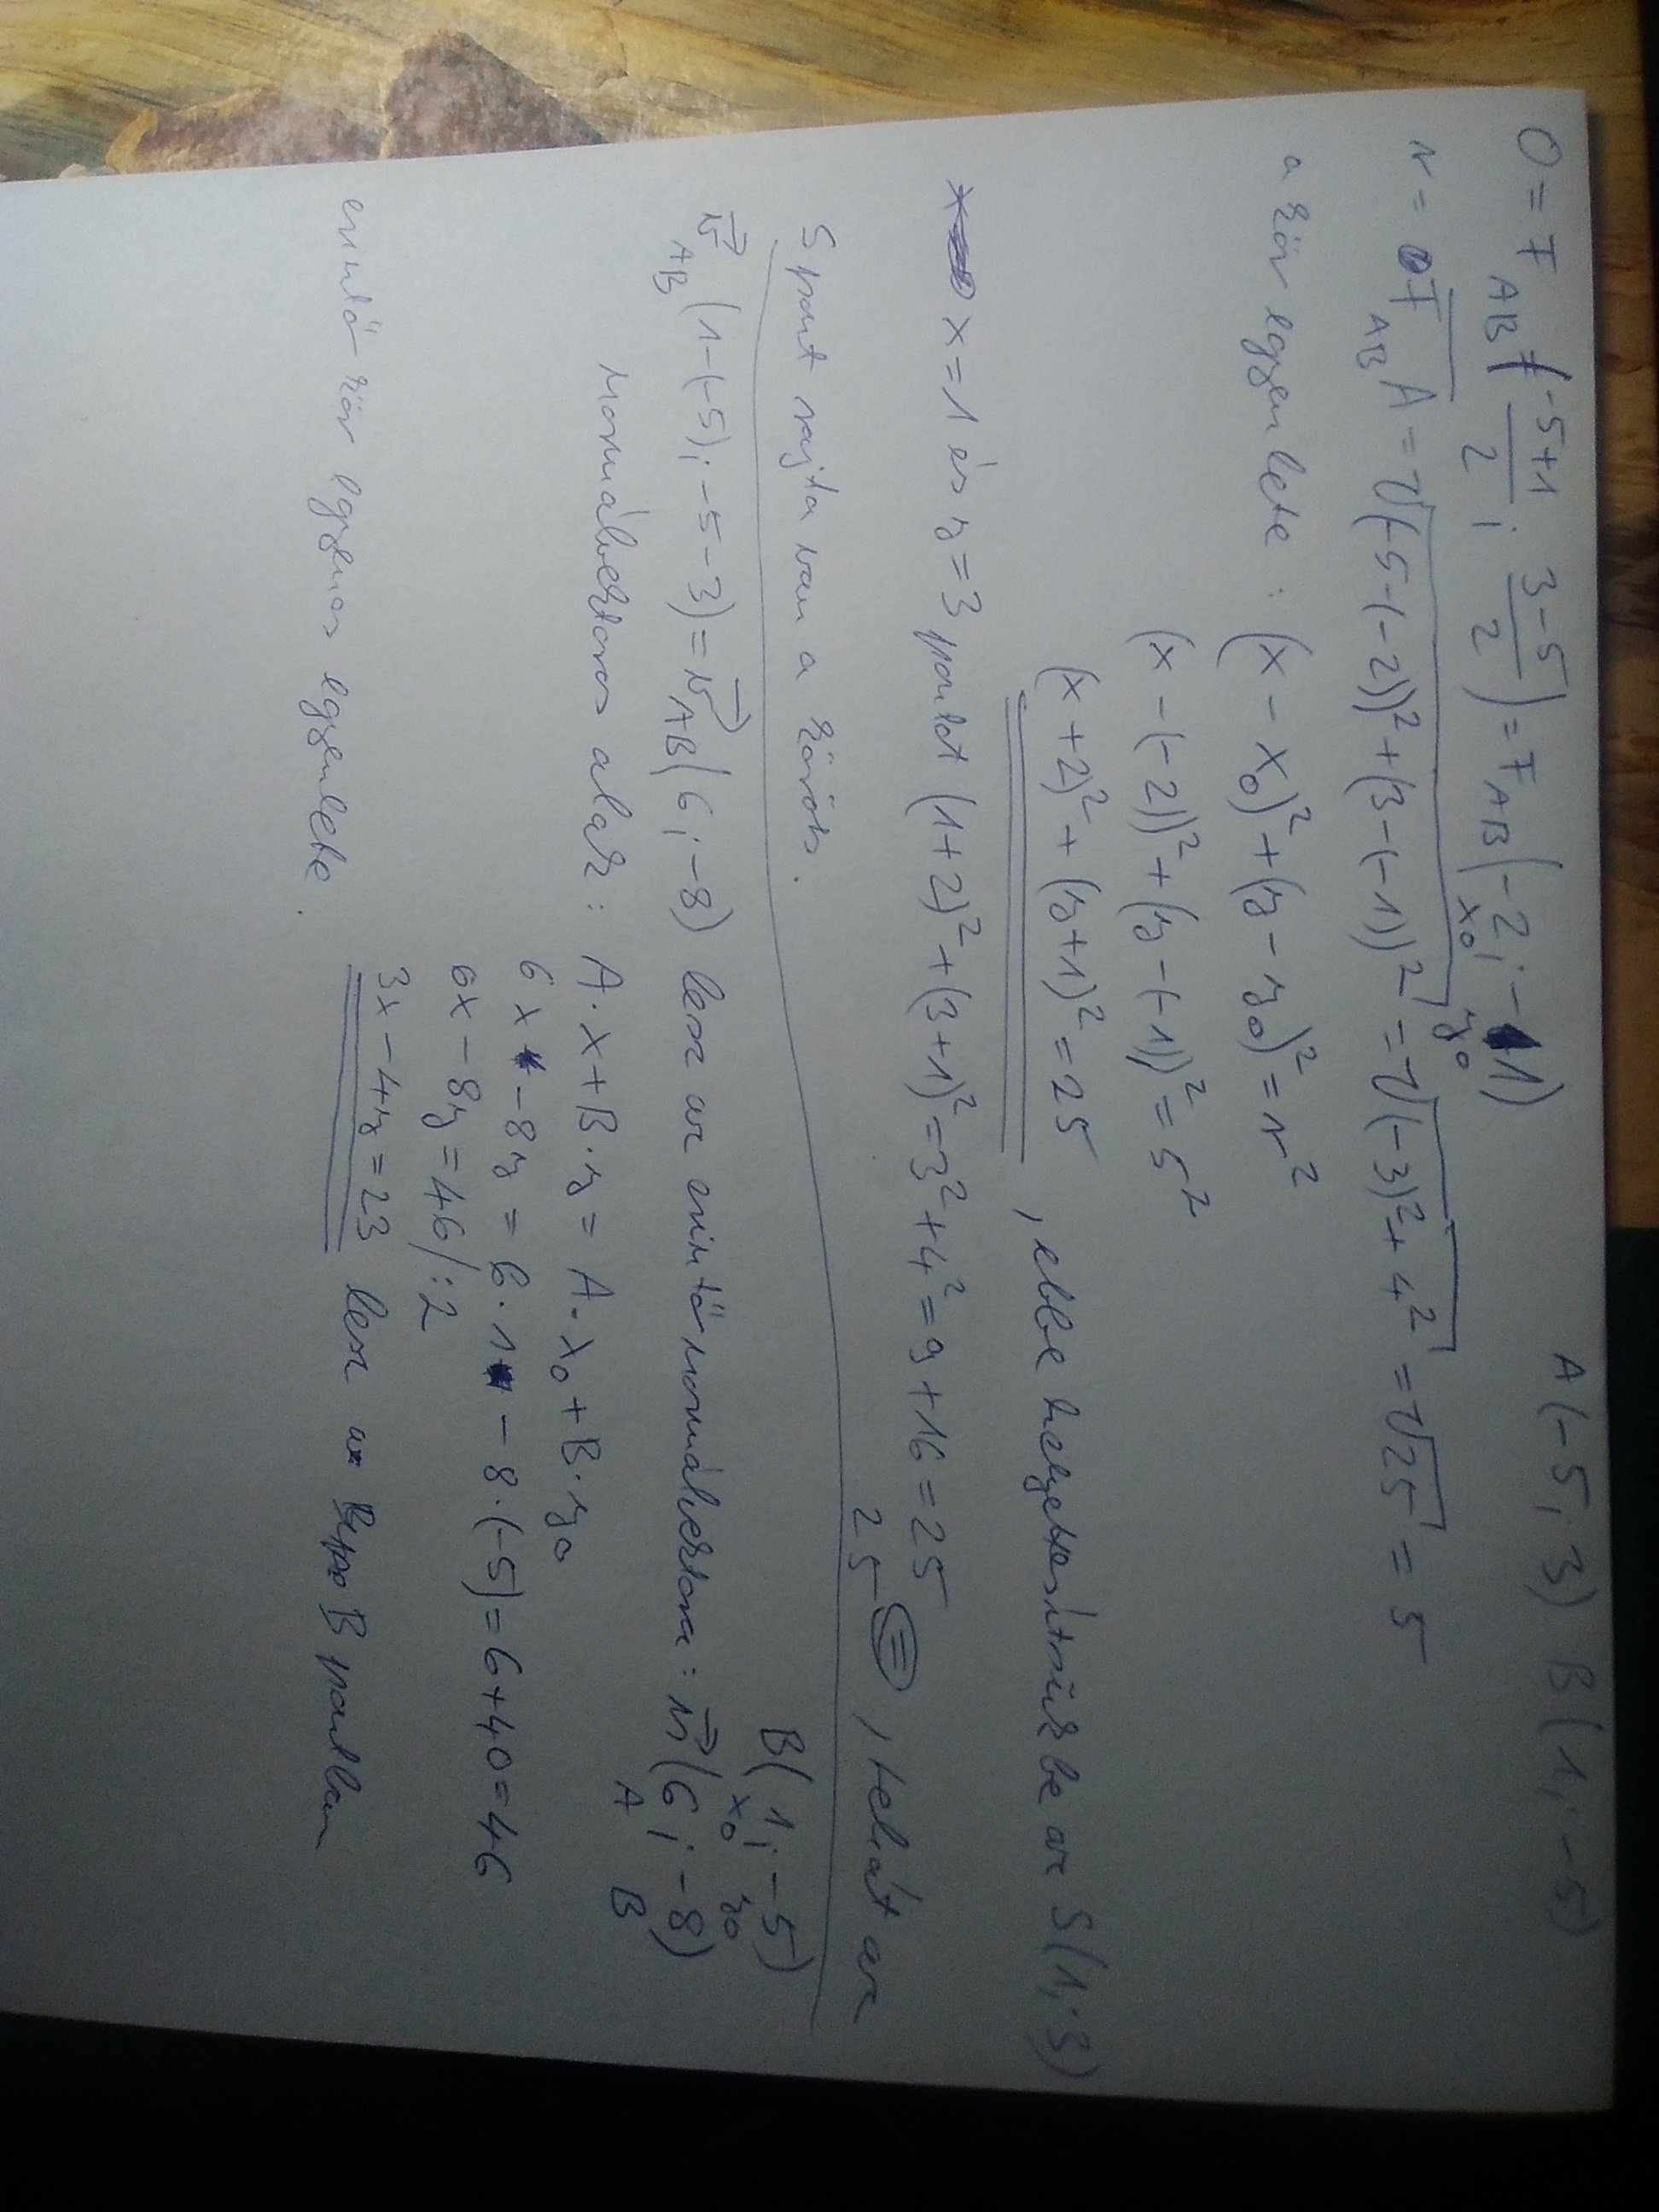 A(-5; 3) B(1; -5)
O = F_AB (-5+1/2 ; 3-5/2) = F_AB (-2; -1)
x₀ y₀
r = F_AB A = √(-5-(-2))² + (3-(-1))² = √(-3)² + 4² = √25 = 5
a kör egyenlete : (x - x₀)² + (y - y₀)² = r²
(x - (-2))² + (y - (-1))² = 5²
(x + 2)² + (y + 1)² = 25 , ebbe helyettesítsük be az S(1; 3)
x = 1 és y = 3 pontot (1+2)² + (3+1)² = 3² + 4² = 9 + 16 = 25
25 = , tehát az
S pont rajta van a körön.
B(1; -5)
x₀ y₀
v_AB (1-(-5); -5-3) = v_AB (6; -8) lesz az érintő normálvektora : n (6; -8)
A B
Normálvektoros alak : A·x + B·y = A·x₀ + B·y₀
6x - 8y = 6·1 - 8·(-5) = 6 + 40 = 46
6x - 8y = 46 /:2
3x - 4y = 23 lesz a B pontban
érintő kör egyenes egyenlete.